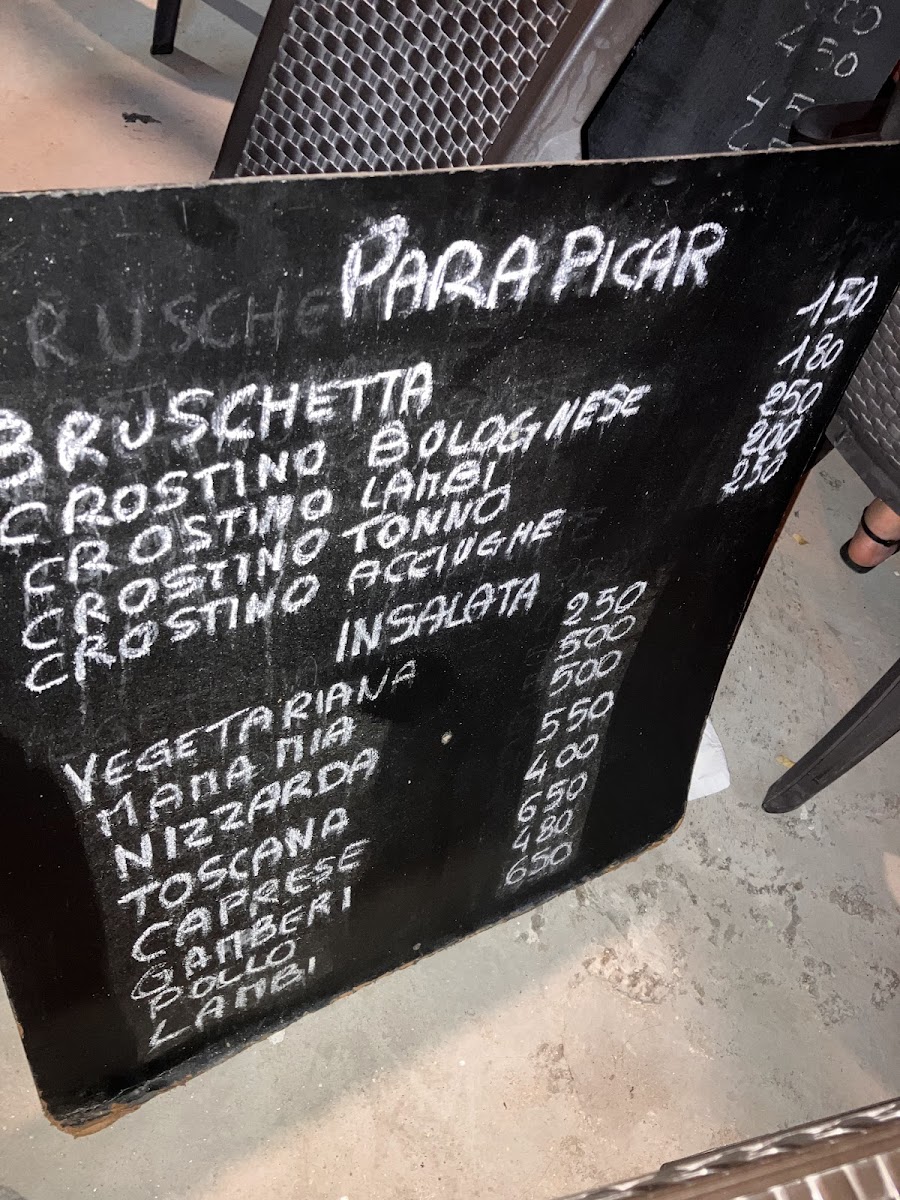 PARA PICAR
BRUSCHETTA 150
CROSTINO BOLOGNESE 180
CROSTINO LAMBI 250
CROSTINO TONNO 200
CROSTINO ACCIUGHE 250
INSALATA
VEGETARIANA 250
MAMA MIA 500
NIZZARDA 500
TOSCANA 550
CAPRESE 400
GAMBERI 650
POLLO 480
LAMBI 650
250